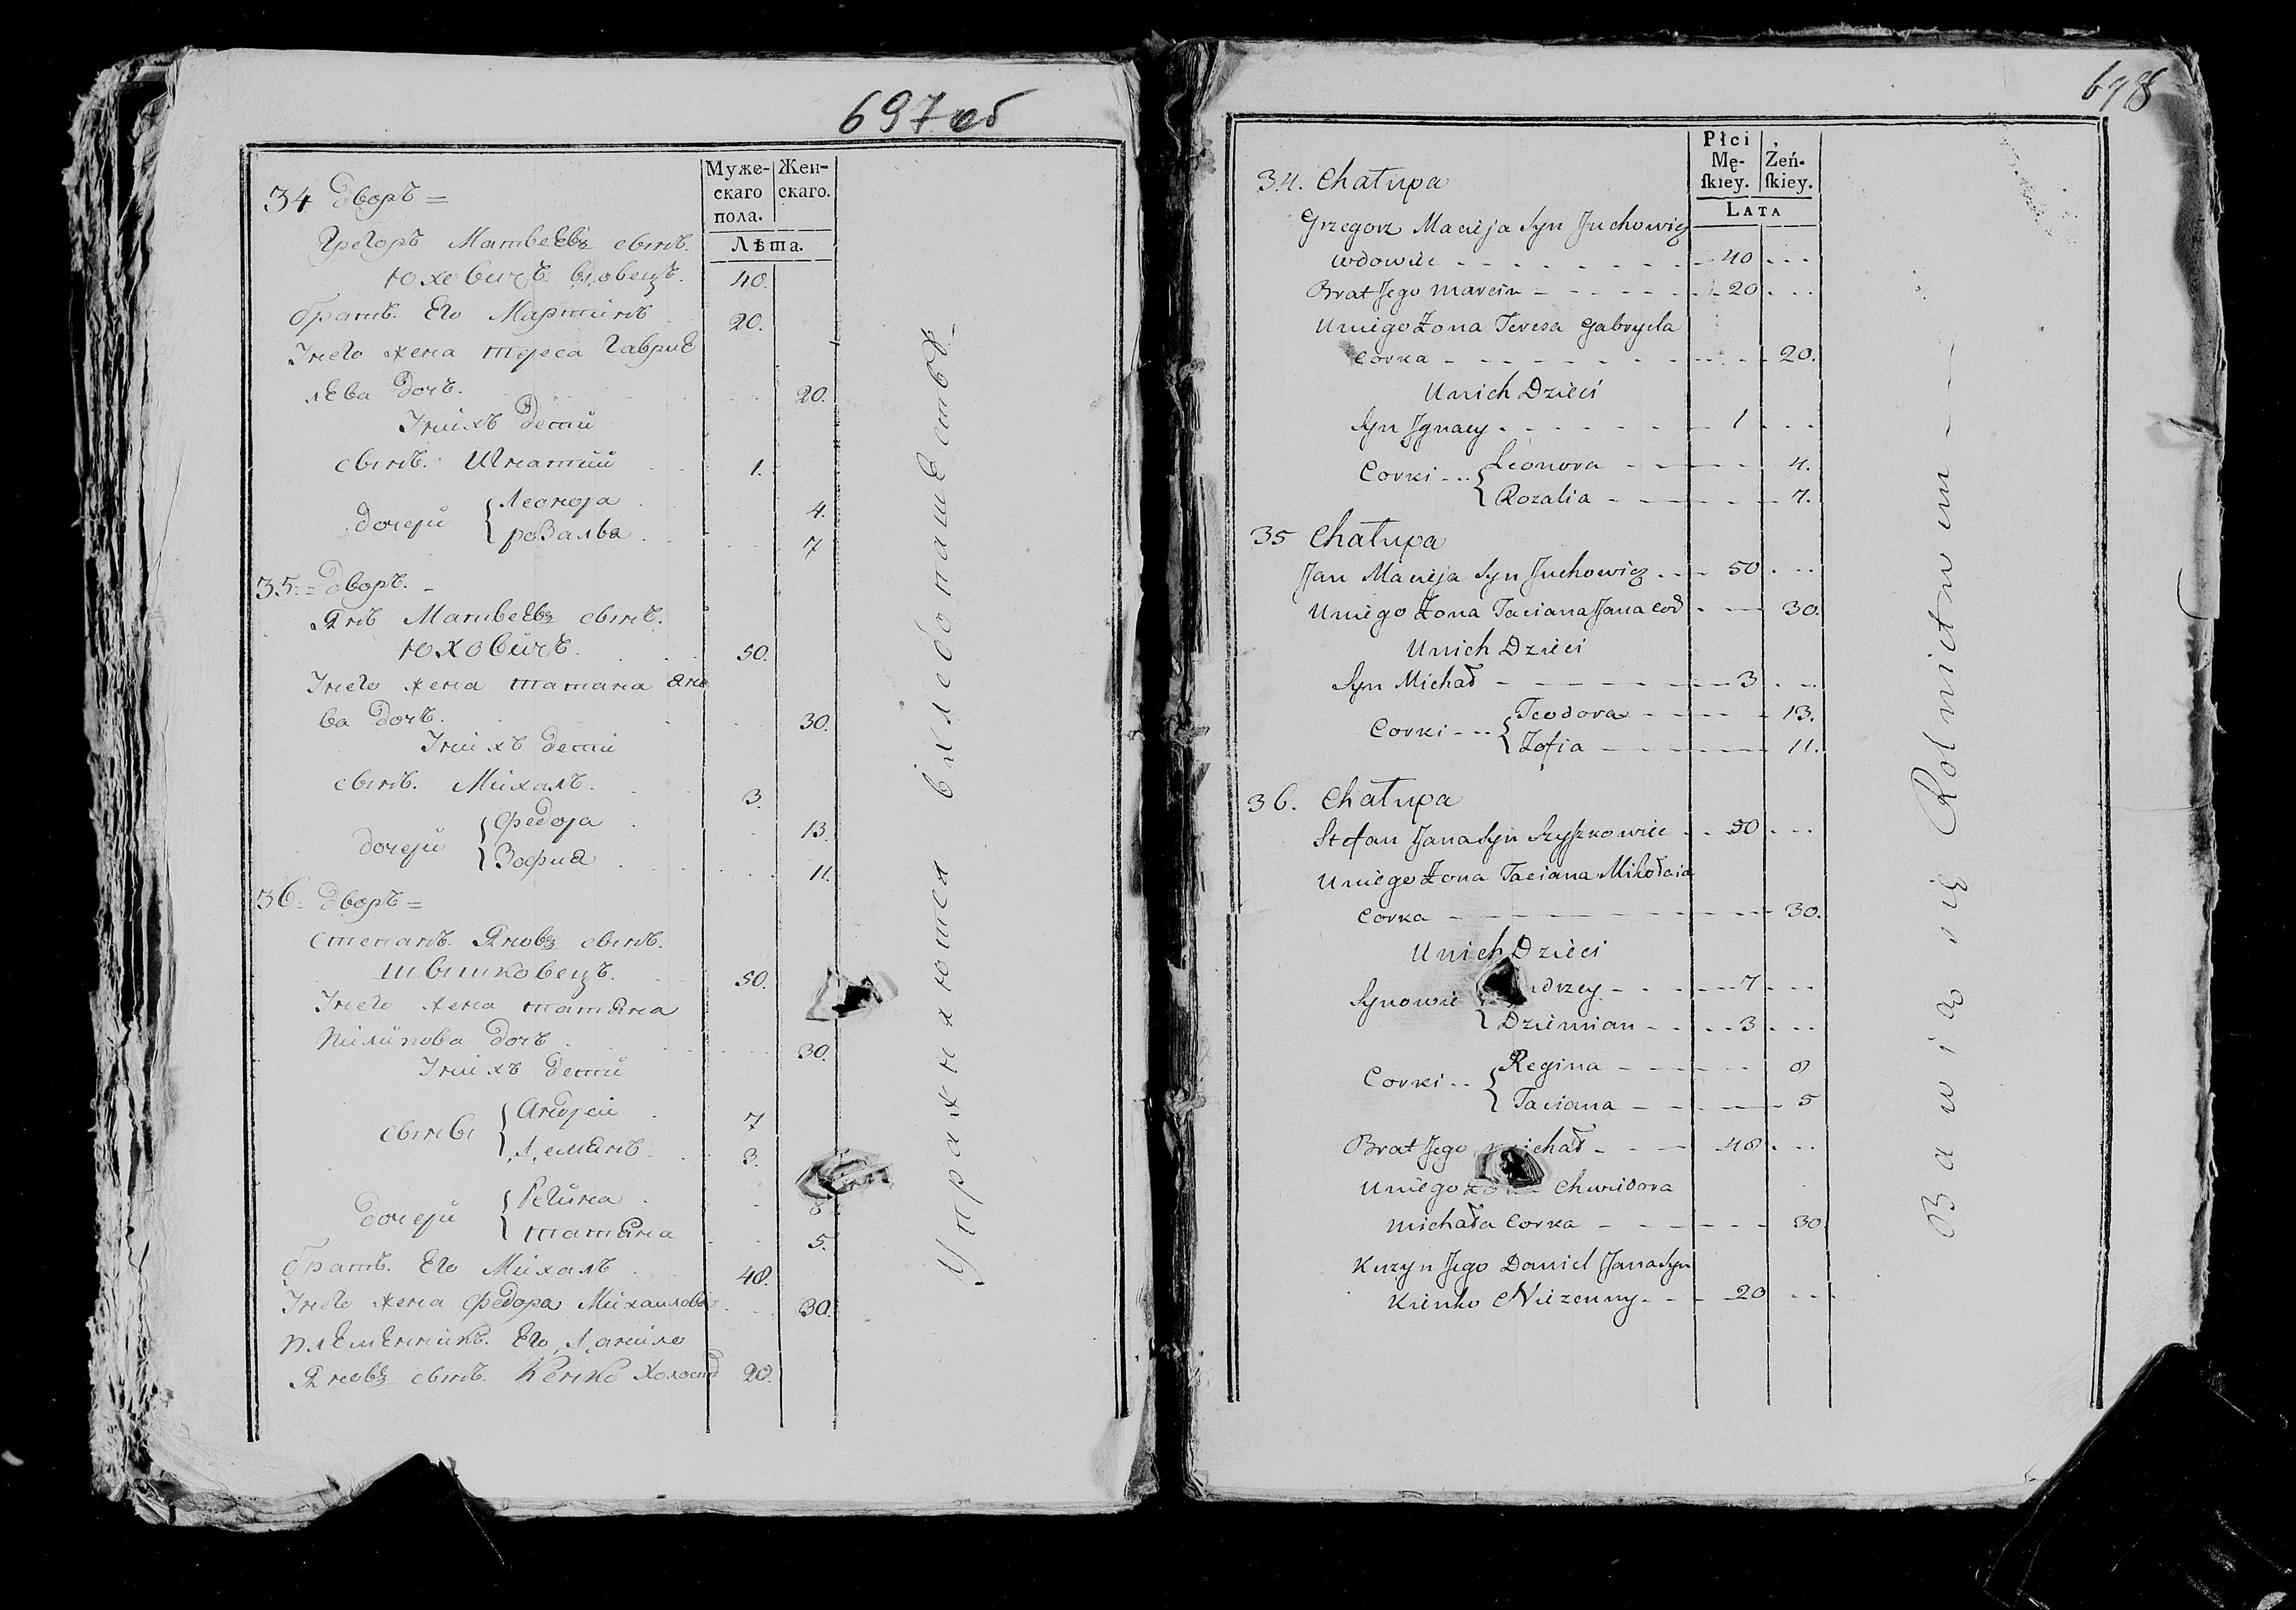 697 об
Муже-
скаго
пола.
Жен-
скаго.
Лѣта.
34 Дворъ =
Грегоръ Матвеевъ сынъ.
Юховичъ. вдовецъ. 40.
братъ. Его Мартинъ 20.
Унего жена тереса Гаврие
лева дочъ. 20.
Унихъ дети
сынъ. Игнатий 1.
дочери { Леонора 4.
розалья 7
35. = Дворъ. =
Янъ Матвеевъ сынъ.
Юховичъ. 50.
Унего жена татана Яно
ва дочъ. 30.
Унихъ дети
сынъ. Михалъ. 3.
дочери { Федора 13.
Зофия 11.
36. Дворъ =
степанъ. Яновъ сынъ.
шышковецъ. 50.
Унего жена татяна
Пилипова дочъ 30.
Унихъ дети
сыны { Андреи 7
Демянъ 3.
дочери { Регина 8
татяна 5.
братъ. Его Михалъ 48.
Унего жена Федора Михаилова 30.
племенникъ. Его, Данило
Яновъ сынъ. Кенко Холостъ 20.
Упражняются вхледопашестве
698
Płci
Mę-
ſkiey.
Żeń-
ſkiey.
Lata
34. Chałupa
Grzegorz Macieja Syn Juchowicz
wdowiec - - - 40 - - -
Brat Jego Marcin - - - 20 - - -
Uniego Żona Teresa Gabryela
Corka - - - 20.
Unich Dzieci
Syn Jgnacy - - - 1 - - -
Corki - - { Leonora - - - 4.
Rozalia - - - 7.
35 Chałupa
Jan Macieja Syn Juchowicz - - 50 - - -
Uniego Żona Taciana Jana Cod - - - 30.
Unich Dzieci
Syn Michał - - - 3 - - -
Corki - - { Teodora - - - 13.
Zofia - - - 11.
36. Chałupa
Stefan Jana Syn Szyszkowiec - - 50 - - -
Uniego Żona Taciana Mikołaia
Corka - - - 30.
Unich Dzieci
Synowie { ndrzey - - - 7 - - -
Dziemian - - - 3 - - -
Corki - - { Regina - - - 8
Taciana - - - 5
Brat Jego Michał - - - 48 - - -
Uniego Żona Chwidora
Michała Corka - - - 30
Kuzyn Jego Daniel Jana Syn
Kienko Nieżenny - - - 20 - - -
Bawią się Rolnictwem